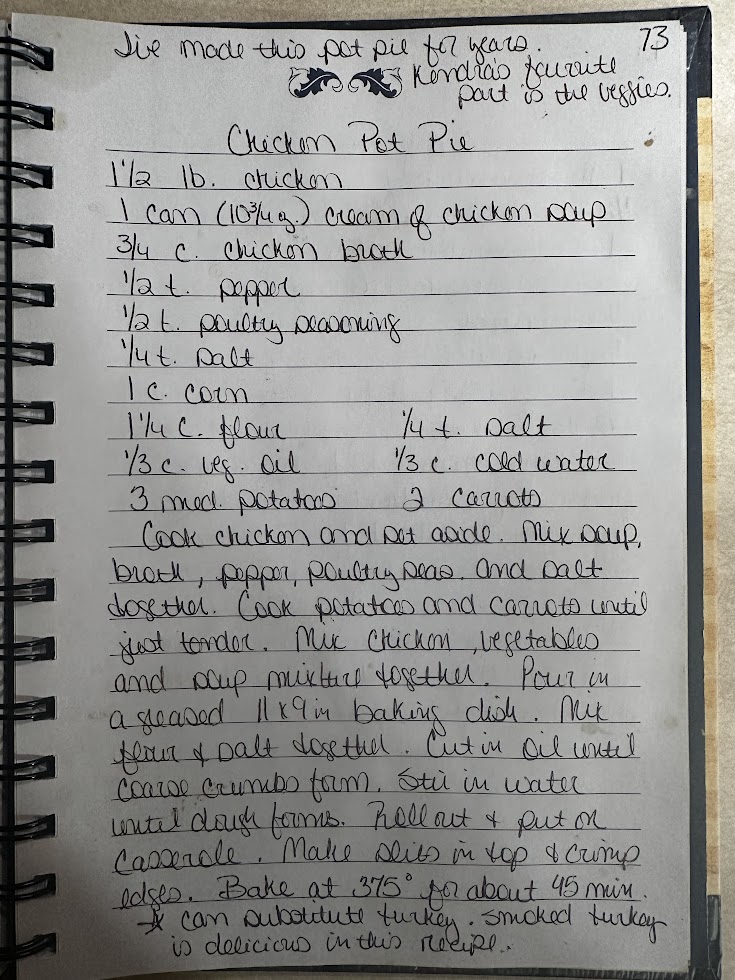 I've made this pot pie for years. 73
Kendra's favorite
part is the veggies.
Chicken Pot Pie
1 1/2 lb. chicken
1 can (10 3/4 oz.) cream of chicken soup
3/4 c. chicken broth
1/2 t. pepper
1/2 t. poultry seasoning
1/4 t. salt
1 c. corn
1 1/4 c. flour 1/4 t. salt
1/3 c. veg. oil 1/3 c. cold water
3 med. potatoes 2 carrots
Cook chicken and set aside. Mix soup,
broth, pepper, poultry seas. and salt
together. Cook potatoes and carrots until
just tender. Mix chicken, vegetables
and soup mixture together. Pour in
a greased 11 x 9 in baking dish. Mix
flour & salt together. Cut in oil until
coarse crumbs form. Stir in water
until dough forms. Roll out & put on
casserole. Make slits in top & crimp
edges. Bake at 375° for about 45 min.
☆ can substitute turkey. smoked turkey
is delicious in this recipe..